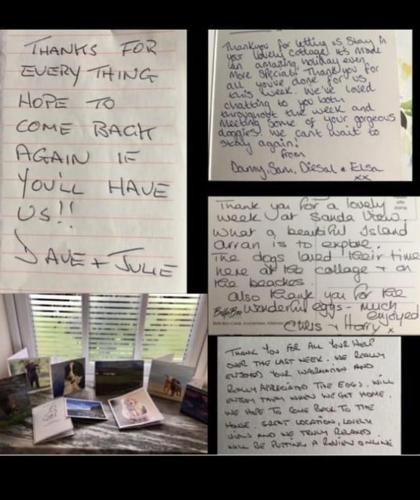 THANKS FOR
EVERY THING
HOPE TO
COME BACK
AGAIN IF
YOU'LL HAVE
US!!
DAVE + JULIE
Thankyou for letting us stay in
your lovely cottage its made
an amazing holiday even
more special! Thank you for
all you've done for us
this week. We've loved
chatting to you both
throughout the week and
meeting some of your gorgeous
doggies! We can't wait to
stay again!
from
Danny, Sam, Diesal & Elsa
xx
Thank you for a lovely
week at Sanda View.
What a beautiful Island
Arran is to explore.
The dogs loved their time
here at the cottage + on
the beaches
also thank you for the
wonderful eggs - much
enjoyed
Chris + Harry x
THANK YOU FOR ALL YOUR HELP
OVER THE LAST WEEK. WE REALLY
ENJOYED YOUR
REALLY APPRECIATED THE EGGS. WILL
ENJOY THEM WHEN WE GET HOME.
WE HOPE TO COME BACK TO THE
HOUSE. GREAT LOCATION, LOVELY
VIEWS AND WE TRULY RELAXED
WILL BE PUTTING A REVIEW ONLINE